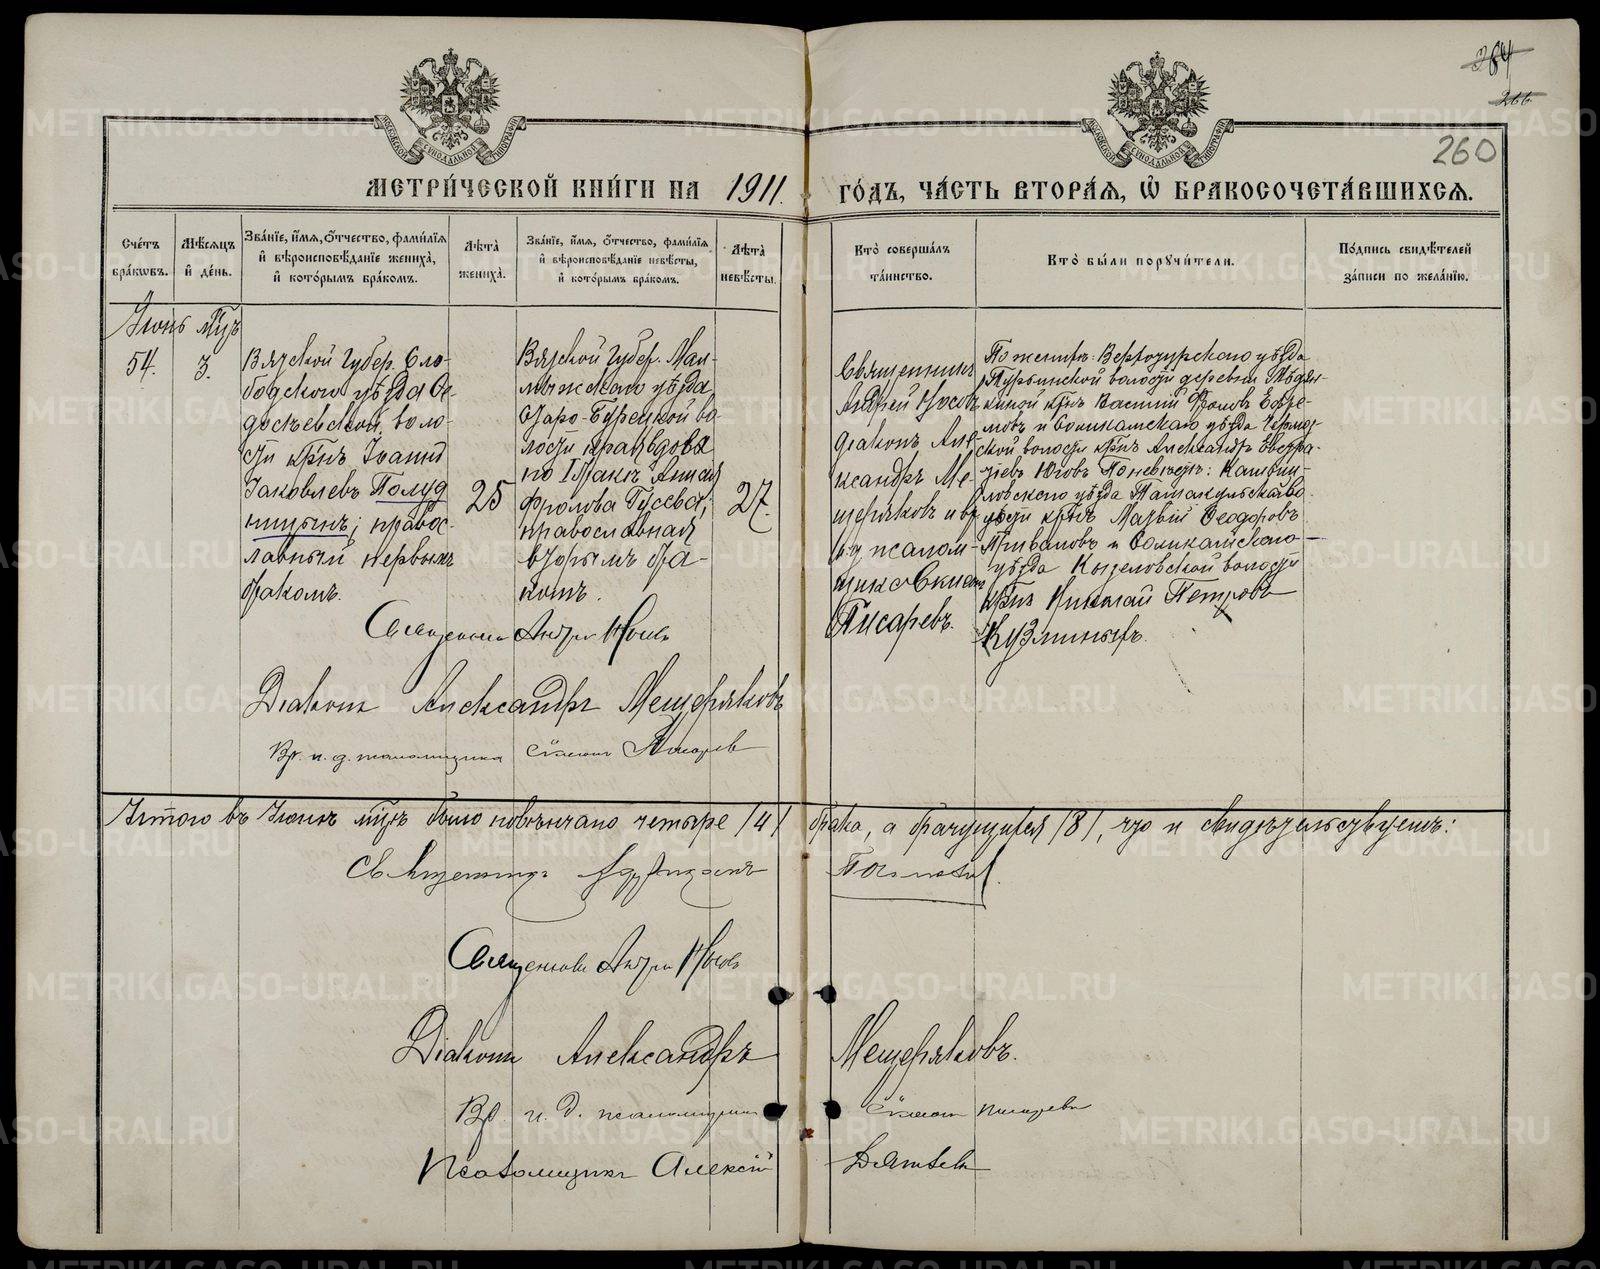 264
266
260
МОСКОВСКОЙ СѴНОДАЛЬНОЙ ТИПОГРАФІИ
МОСКОВСКОЙ СѴНОДАЛЬНОЙ ТИПОГРАФІИ
МЕТРИ́ЧЕСКОЙ КНИ́ГИ НА 1911. ГО́ДЪ, ЧА́СТЬ ВТОРА́Ѧ, Ѡ҆ БРАКОСОЧЕТА́ВШИХСѦ.
Сче́тъ
бра́кѡвъ.
Мѣ́сѧцъ
и҆ де́нь.
Зва́нїе, и҆́мѧ, ѻ҆́тчество, фами́лїѧ
и҆ вѣроисповѣ́данїе жениха̀,
и҆ кото́рымъ бра́комъ.
Лѣ́та̀
жениха̀.
Зва́нїе, и҆́мѧ, ѻ҆́тчество, фами́лїѧ
и҆ вѣроисповѣ́данїе невѣ́сты,
и҆ кото́рымъ бра́комъ.
Лѣ́та̀
невѣ́сты.
Кто̀ соверша́лъ
та́инство.
Кто̀ бы́ли пору́чители.
По́дпись свидѣ́телей
за́писи по жела́нїю.
Іюнь мцъ
54.
3.
Вятской Губер. Сло-
бодского уѣзда Ѳе-
досѣевской воло-
сти крнъ Іоаннъ
Іаковлевъ Полуд
ницынъ, правос-
лавный первымъ
бракомъ.
25
Вятской Губер. Мал-
мыжского уѣзда
Старо-Бурецкой во
лости края вдова
по I бракѣ Анисія
Фролова Гусева,
православная
вторымъ бра-
комъ.
27.
Священникъ
Андрей Носовъ
діаконъ Але-
ксандръ Ме-
щеряковъ и вр
и д псалом-
щика Симеонъ
Писаревъ.
По женихѣ: Верхотурского уѣзда
Турьинской волости деревни Мѣдян-
киной крнъ Василій Фроловъ Ефре-
мовъ и Соликамскаго уѣзда Чермоз-
ской волости крнъ Александръ Евгра-
фіевъ Юговъ По невѣстѣ: Камыш-
ловского уѣзда Тамакульской во-
лости крнъ Матвій Ѳеодоровъ
Приваловъ и Соликамского
уѣзда Кизеловской волости
крнъ Николай Петровъ
Кузминыхъ.
Священникъ Андрей Носовъ
Діаконъ Александръ Мещеряковъ
Вр. и. д. псаломщика Симеонъ Писарев
Итого въ Іюнѣ мцѣ было повѣнчано четыре /4/ брака, а брачущихся /8/, что и свидѣтельствуемъ:
Священникъ
Священникъ Андрей Носовъ
Діаконъ Александръ Мещеряковъ.
Вр. и. д. псаломщика Симеонъ Писаревъ
Псаломщикъ Алексій
METRIKI.GASO-URAL.RU